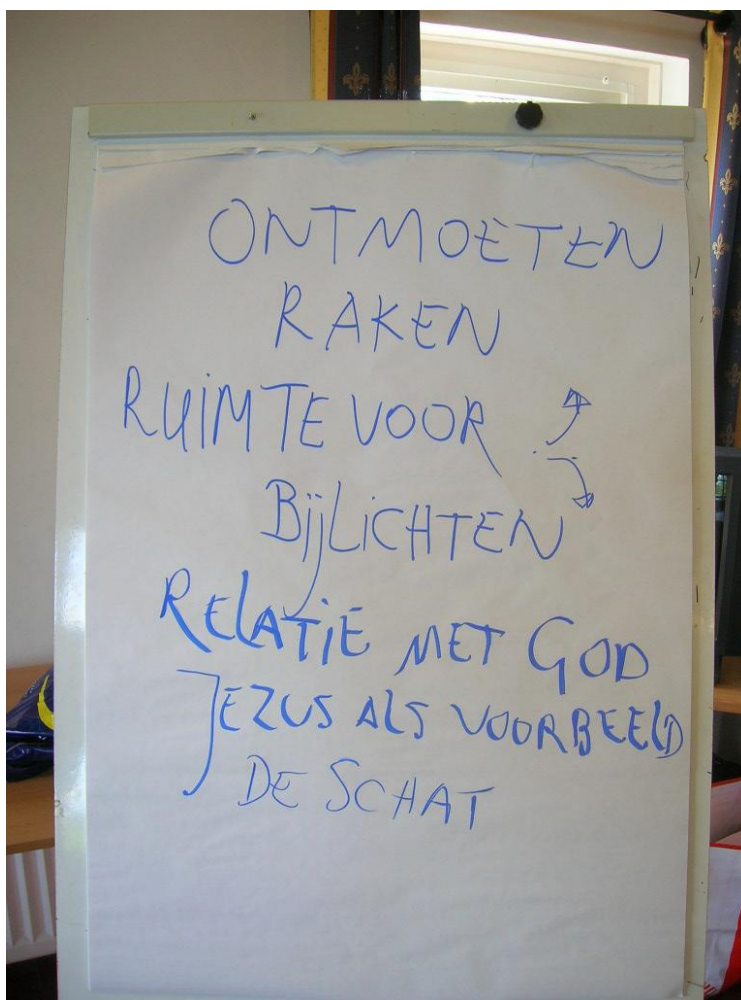 ONTMOETEN
RAKEN
RUIMTE VOOR
BijLiCHTEN
RELATiE MET GOD
JEZUS ALS VOORBEELD
DE SCHAT